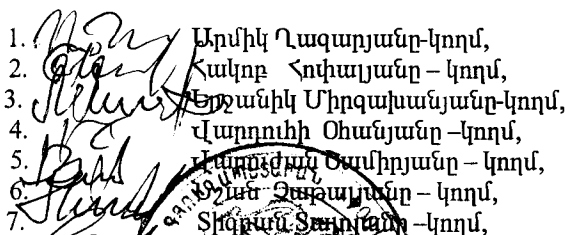 1. Արմիկ Ղազարյանը-կողմ,
2. Հակոբ Հոփալյանը – կողմ,
3. Երջանիկ Միրզախանյանը-կողմ,
4. Վարդուհի Օհանյանը –կողմ,
5. Վարուժան Ծամիրյանը – կողմ,
6. – կողմ,
7. Տիգրան –կողմ,